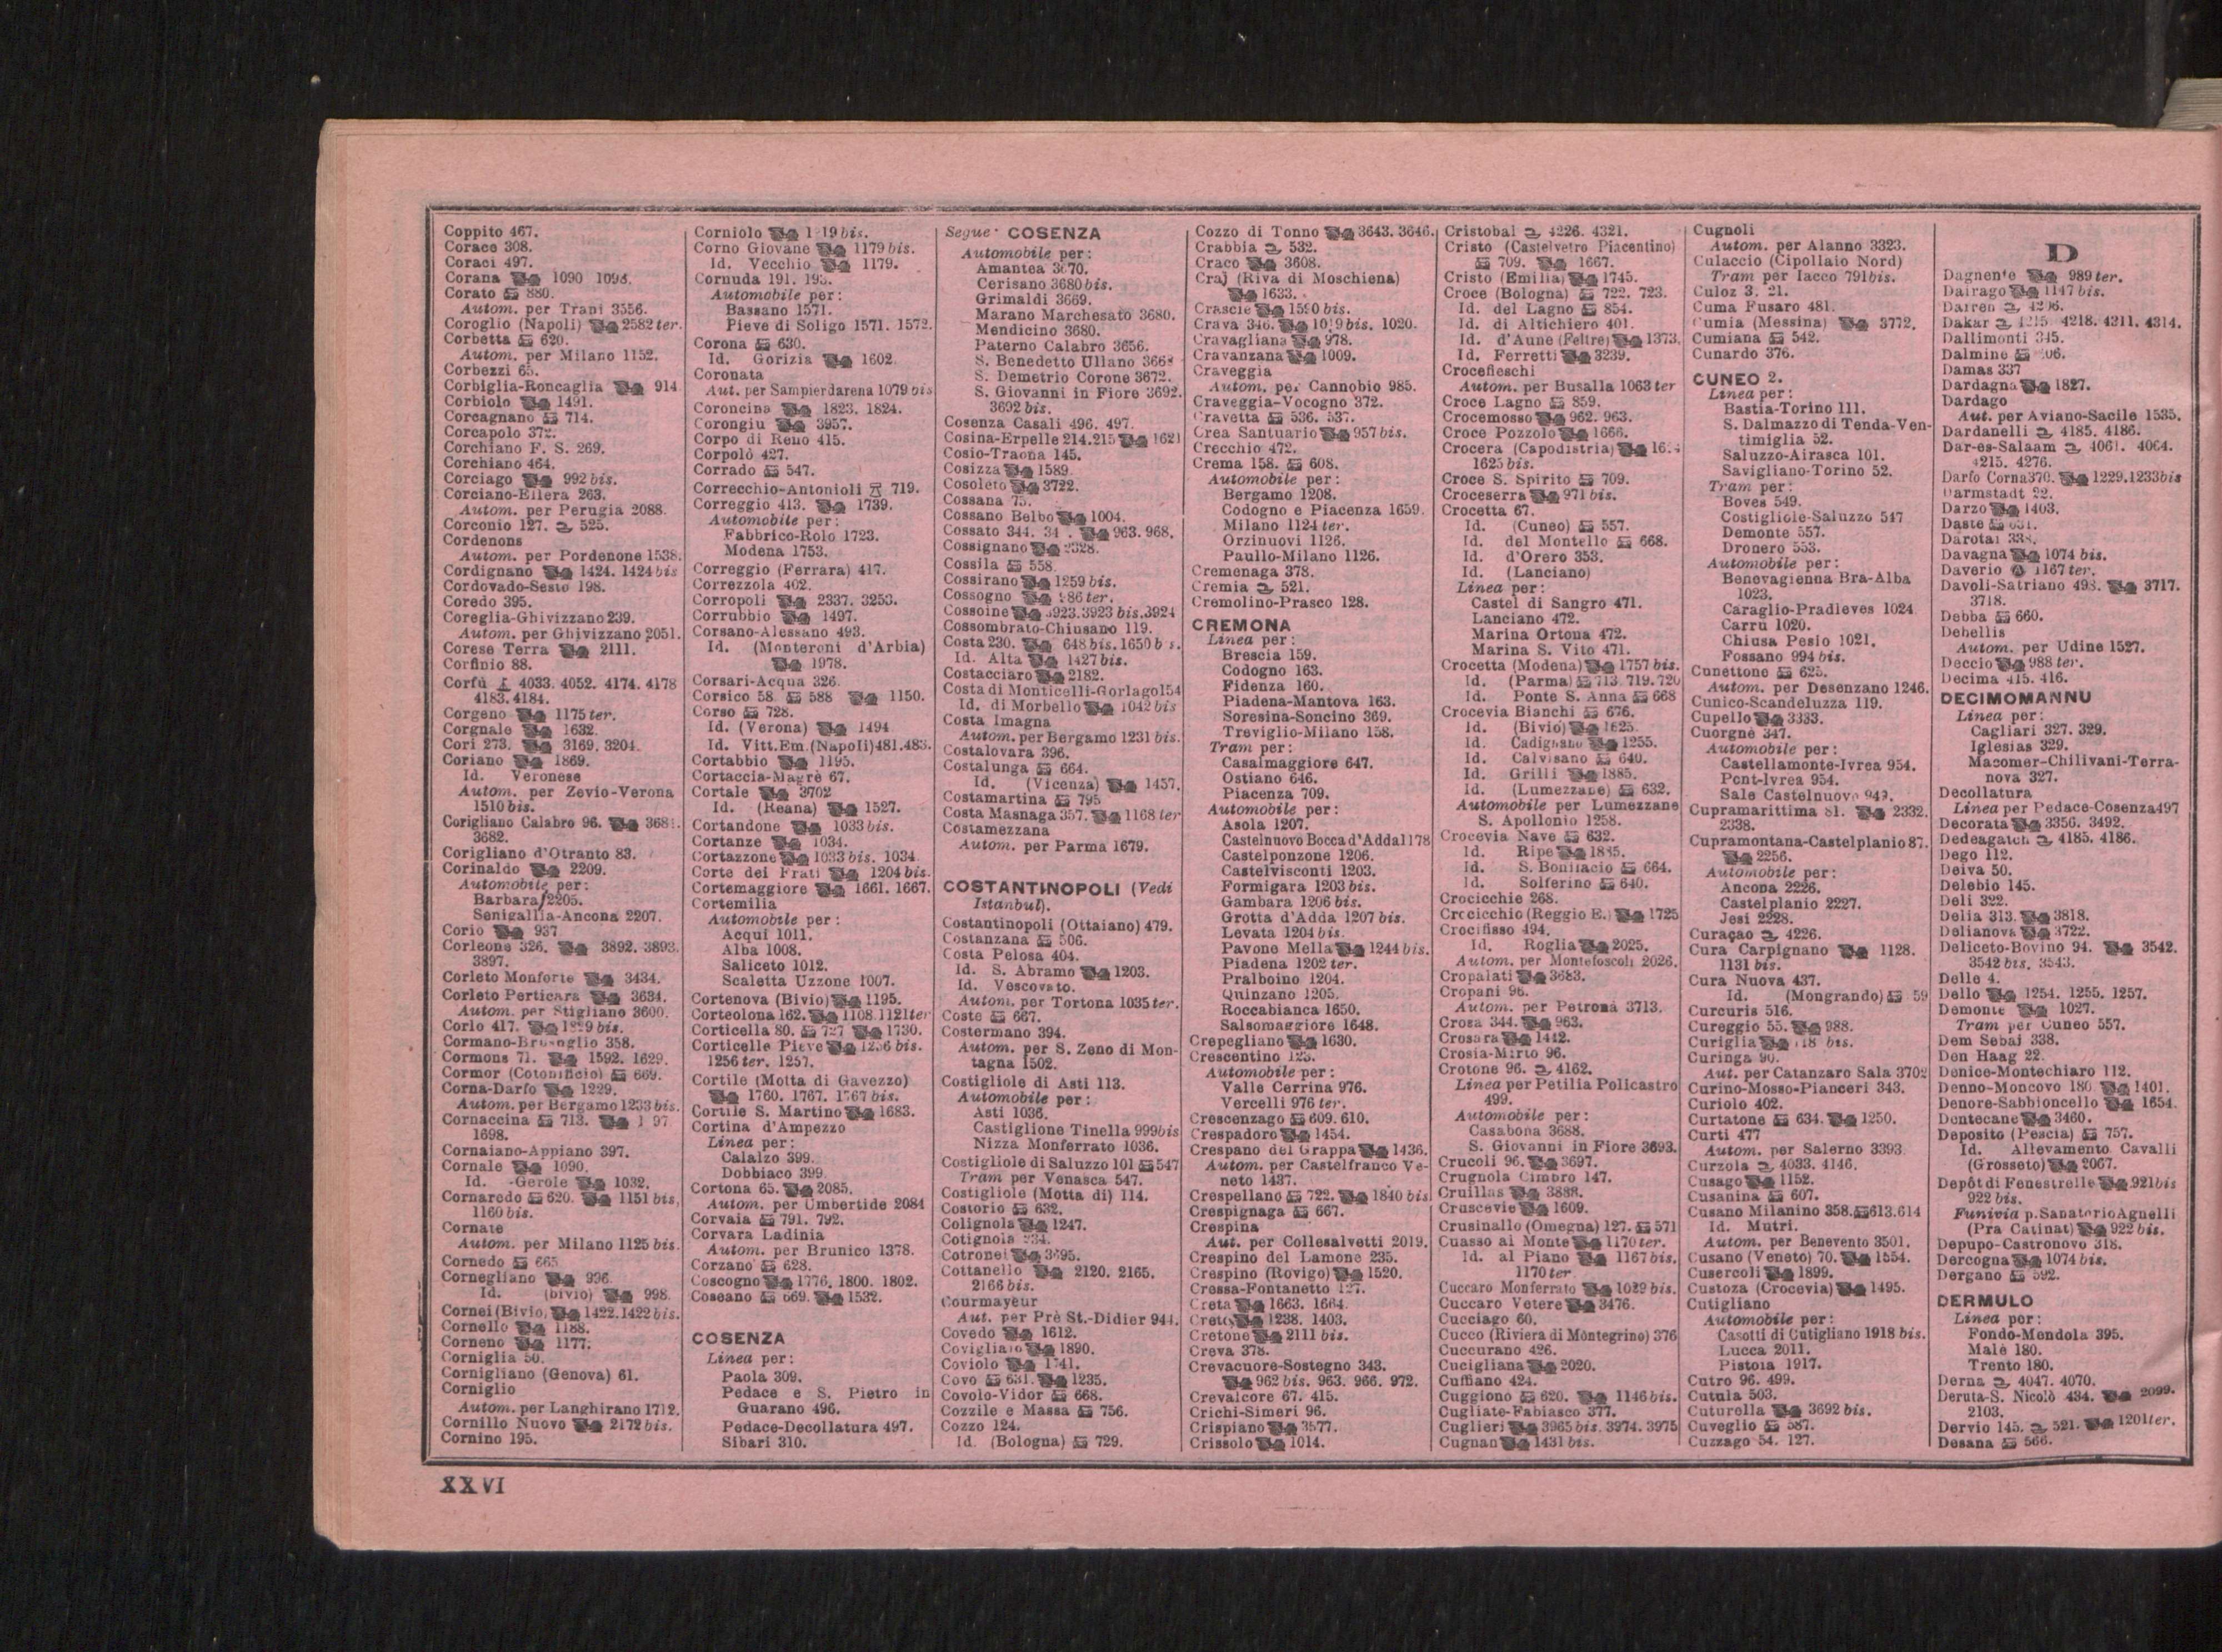 Coppito 467.
Corace 308.
Coraci 497.
Corana 1090
Corato 880.
Autom. per Trani 3556.
Coroglio (Napoli) 2582 ter.
Corbetta 620.
Autom. per Milano 1152.
Corbezzi 65.
Corbiglia-Roncaglia 914
Corbiolo 1491.
Corcagnano 714.
Corcapolo 372.
Corchiano F. S. 269.
Corchiano 464.
Corciago 992 bis.
Corciano-Ellera 263.
Autom. per Perugia 2088.
Corconio 127. 525.
Cordenons
Autom. per Pordenone 1538.
Cordignano 1424. 1424 bis
Cordovado-Sesto 198.
Coredo 395.
Coreglia-Ghivizzano 239.
Autom. per Ghivizzano 2051.
Corese Terra 2111.
Corfinio 88.
Corfù 4033. 4052. 4174. 4178
4183. 4184.
Corgeno 1175 ter.
Corgnale 1632.
Cori 273. 3169. 3204.
Coriano 1869.
Id. Veronese
Autom. per Zevio-Verona
1510 bis.
Corigliano Calabro 96.
3682.
Corigliano d'Otranto 83.
Corinaldo 2209.
Automobile per:
Barbara 2205.
Senigallia-Ancona 2207.
Corio 937
Corleone 326. 3892. 3893.
3897.
Corleto Monforte 3434.
Corleto Perticara 3634.
Autom. per Stigliano 3600.
Corlo 417.
Cormano-Brusuglio 358.
Cormons 71. 1592. 1629.
Cormor (Cotonificio) 669.
Corna-Darfo 1229.
Autom. per Bergamo 1233 bis.
Cornaccina 713.
1698.
Cornaiano-Appiano 397.
Cornale 1090.
Id. -Gerole 1032.
Cornaredo 620. 1151 bis,
1160 bis.
Cornate
Autom. per Milano 1125 bis.
Cornedo 665
Cornegliano 996.
Id. (bivio) 998.
Cornei (Bivio) 1422. 1422 bis.
Cornello 1188.
Corneno 1177.
Corniglia 50.
Cornigliano (Genova) 61.
Corniglio
Autom. per Langhirano 1712.
Cornillo Nuovo 2172 bis.
Cornino 195.
Corniolo
Corno Giovane 1179 bis.
Id. Vecchio 1179.
Cornuda 191.
Automobile per:
Bassano 1571.
Pieve di Soligo 1571. 1572.
Corona 630.
Id. Gorizia 1602.
Coronata
Aut. per Sampierdarena 1079 bis
Coroncina 1823. 1824.
Corongiu 3957.
Corpo di Reno 415.
Corpolò 427.
Corrado 547.
Correcchio-Antonioli 719.
Correggio 413. 1739.
Automobile per:
Fabbrico-Rolo 1723.
Modena 1753.
Correggio (Ferrara) 417.
Correzzola 402.
Corropoli 2337. 3253.
Corrubbio 1497.
Corsano-Alessano 493.
Id. (Monteroni d'Arbia)
1978.
Corsari-Acqua 326.
Corsico 58. 588 1150.
Corso 728.
Id. (Verona) 1494
Id. Vitt.Em.(Napoli)481.483.
Cortabbio 1195.
Cortaccia-Magrè 67.
Cortale 3702
Id. (Reana) 1527.
Cortandone 1033 bis.
Cortanze 1034.
Cortazzone 1033 bis. 1034.
Corte dei Frati 1204 bis.
Cortemaggiore 1661. 1667.
Cortemilia
Automobile per:
Acqui 1011.
Alba 1008.
Saliceto 1012.
Scaletta Uzzone 1007.
Cortenova (Bivio) 1195.
Corteolona 162. 1108.1121ter
Corticella 80. 727 1730.
Corticelle Pieve 1256 bis.
1256 ter. 1257.
Cortile (Motta di Gavezzo)
1760. 1767. 1767 bis.
Cortile S. Martino 1683.
Cortina d'Ampezzo
Linea per:
Calalzo 399.
Dobbiaco 399.
Cortona 65. 2085.
Autom. per Umbertide 2084
Corvaia 791. 792.
Corvara Ladinia
Autom. per Brunico 1378.
Corzano 628.
Coscogno 1776. 1800. 1802.
Coseano 669. 1532.
COSENZA
Linea per:
Paola 309.
Pedace e S. Pietro in
Guarano 496.
Pedace-Decollatura 497.
Sibari 310.
Segue COSENZA
Automobile per:
Amantea 3670.
Cerisano 3680 bis.
Grimaldi 3669.
Marano Marchesato 3680.
Mendicino 3680.
Paterno Calabro 3656.
S. Benedetto Ullano
S. Demetrio Corone 3672.
S. Giovanni in Fiore 3692.
3692 bis.
Cosenza Casali 496. 497.
Cosina-Erpelle 214.215 1621
Cosio-Traona 145.
Cosizza 1589.
Cosoleto 3722.
Cossana 75.
Cossano Belbo 1004.
Cossato 344. 963. 968.
Cossignano 2328.
Cossila 558.
Cossirano 1259 bis.
Cossogno
Cossoine 3923.3923 bis.3924
Cossombrato-Chiusano 119.
Costa 230. 648 bis. 1650
Id. Alta 1427 bis.
Costacciaro 2182.
Costa di Monticelli-Gorlago154
Id. di Morbello 1042 bis
Costa Imagna
Autom. per Bergamo 1231 bis.
Costalovara 396.
Costalunga 664.
Id. (Vicenza) 1457.
Costamartina 795
Costa Masnaga 357. 1168 ter
Costamezzana
Autom. per Parma 1679.
COSTANTINOPOLI (Vedi
Istanbul).
Costantinopoli (Ottaiano) 479.
Costanzana 506.
Costa Pelosa 404.
Id. S. Abramo 1203.
Id. Vescovato.
Autom. per Tortona 1035 ter.
Coste 667.
Costermano 394.
Autom. per S. Zeno di Mon-
tagna 1502.
Costigliole di Asti 113.
Automobile per:
Asti 1036.
Castiglione Tinella 999bis
Nizza Monferrato 1036.
Costigliole di Saluzzo 101 547
Tram per Venasca 547.
Costigliole (Motta di) 114.
Costorio 632.
Cotignola 1247.
Cotignola 234.
Cotronei 3695.
Cottanello 2120. 2165.
2166 bis.
Courmayeur
Aut. per Prè St.-Didier 944.
Covedo 1612.
Covigliaio 1890.
Coviolo 1741.
Covo 631. 1235.
Covolo-Vidor 668.
Cozzile e Massa 756.
Cozzo 124.
Id. (Bologna) 729.
Cozzo di Tonno 3643. 3646.
Crabbia 532.
Craco 3608.
Craj (Riva di Moschiena)
1633.
Crascie 1590 bis.
Crava 346. 1019 bis. 1020.
Cravagliana 978.
Cravanzana 1009.
Craveggia
Autom. per Cannobio 985.
Craveggia-Vocogno 372.
Cravetta 536. 537.
Crea Santuario 957 bis.
Crecchio 472.
Crema 158. 608.
Automobile per:
Bergamo 1208.
Codogno e Piacenza 1659.
Milano 1124 ter.
Orzinuovi 1126.
Paullo-Milano 1126.
Cremenaga 378.
Cremia 521.
Cremolino-Prasco 128.
CREMONA
Linea per:
Brescia 159.
Codogno 163.
Fidenza 160.
Piadena-Mantova 163.
Soresina-Soncino 369.
Treviglio-Milano 158.
Tram per:
Casalmaggiore 647.
Ostiano 646.
Piacenza 709.
Automobile per:
Asola 1207.
Castelnuovo Bocca d'Adda1178
Castelponzone 1206.
Castelvisconti 1203.
Formigara 1203 bis.
Gambara 1206 bis.
Grotta d'Adda 1207 bis.
Levata 1204 bis.
Pavone Mella 1244 bis.
Piadena 1202 ter.
Pralboino 1204.
Quinzano 1205.
Roccabianca 1650.
Salsomaggiore 1648.
Crepegliano 1630.
Crescentino 123.
Automobile per:
Valle Cerrina 976.
Vercelli 976 ter.
Crescenzago 609. 610.
Crespadoro 1454.
Crespano del Grappa 1436.
Autom. per Castelfranco Ve-
neto 1437.
Crespellano 722. 1840 bis
Crespignaga 667.
Crespina
Aut. per Collesalvetti 2019.
Crespino del Lamone 235.
Crespino (Rovigo) 1520.
Cressa-Fontanetto 127.
Creta 1663. 1664.
Creto 1238. 1403.
Cretone 2111 bis.
Creva 378.
Crevacuore-Sostegno 343.
962 bis. 963. 966. 972.
Crevalcore 67. 415.
Crichi-Simeri 96.
Crispiano 3577.
Crissolo 1014.
Cristobal 4226. 4321.
Cristo (Castelvetro Piacentino)
709. 1667.
Cristo (Emilia) 1745.
Croce (Bologna) 722. 723.
Id. del Lagno 854.
Id. di Altichiero 401.
Id. d'Aune (Feltre) 1373.
Id. Ferretti 3239.
Crocefieschi
Autom. per Busalla 1063 ter
Croce Lagno 859.
Crocemosso 962. 963.
Croce Pozzolo 1666.
Crocera (Capodistria)
1625 bis.
Croce S. Spirito 709.
Croceserra 971 bis.
Crocetta 67.
Id. (Cuneo) 557.
Id. del Montello 668.
Id. d'Orero 353.
Id. (Lanciano)
Linea per:
Castel di Sangro 471.
Lanciano 472.
Marina Ortona 472.
Marina S. Vito 471.
Crocetta (Modena) 1757 bis.
Id. (Parma) 713. 719. 720
Id. Ponte S. Anna 668
Crocevia Bianchi 676.
Id. (Bivio) 1625.
Id. Cadignano 1255.
Id. Calvisano 640.
Id. Grilli 1885.
Id. (Lumezzane) 632.
Automobile per Lumezzane
S. Apollonio 1258.
Crocevia Nave 632.
Id. Ripe 1885.
Id. S. Bonifacio 664.
Id. Solferino 640.
Crocicchie 268.
Crocicchio (Reggio E.) 1725
Crocifisso 494.
Id. Roglia 2025.
Autom. per Montefoscoli 2026.
Cropalati 3683.
Cropani 96.
Autom. per Petronà 3713.
Crosa 344. 963.
Crosara 1412.
Crosia-Mirto 96.
Crotone 96. 4162.
Linea per Petilia Policastro
499.
Automobile per:
Casabona 3688.
S. Giovanni in Fiore 3693.
Crucoli 96. 3697.
Crugnola Cimbro 147.
Cruillas 3888.
Cruscevie 1609.
Crusinallo (Omegna) 127. 571
Cuasso al Monte 1170 ter.
Id. al Piano 1167 bis.
1170 ter
Cuccaro Monferrato 1029 bis.
Cuccaro Vetere 3476.
Cucciago 60.
Cucco (Riviera di Montegrino) 376
Cuccurano 426.
Cucigliana 2020.
Cuffiano 424.
Cuggiono 620. 1146 bis.
Cugliate-Fabiasco 377.
Cuglieri 3965 bis. 3974. 3975
Cugnan 1431 bis.
Cugnoli
Autom. per Alanno 3323.
Culaccio (Cipollaio Nord)
Tram per Iacco 791bis.
Culoz 3. 21.
Cuma Fusaro 481.
Cumia (Messina) 3772.
Cumiana 542.
Cunardo 376.
CUNEO 2.
Linea per:
Bastia-Torino 111.
S. Dalmazzo di Tenda-Ven-
timiglia 52.
Saluzzo-Airasca 101.
Savigliano-Torino 52.
Tram per:
Boves 549.
Costigliole-Saluzzo 547
Demonte 557.
Dronero 553.
Automobile per:
Benevagienna Bra-Alba
1023.
Caraglio-Pradleves 1024
Carrù 1020.
Chiusa Pesio 1021.
Fossano 994 bis.
Cunettone 625.
Autom. per Desenzano 1246.
Cunico-Scandeluzza 119.
Cupello 3333.
Cuorgnè 347.
Automobile per:
Castellamonte-Ivrea 954.
Pont-Ivrea 954.
Sale Castelnuovo 949.
Cupramarittima 81. 2332.
2338.
Cupramontana-Castelplanio 87.
2256.
Automobile per:
Ancona 2226.
Castelplanio 2227.
Jesi 2228.
Curaçao 4226.
Cura Carpignano 1128.
1131 bis.
Cura Nuova 437.
Id. (Mongrando)
Curcuris 516.
Cureggio 55. 988.
Curiglia
Curinga 90.
Aut. per Catanzaro Sala 3702
Curino-Mosso-Pianceri 343.
Curiolo 402.
Curtatone 634. 1250.
Curti 477
Autom. per Salerno 3393.
Curzola 4033. 4146.
Cusago 1152.
Cusanina 607.
Cusano Milanino 358. 613.614
Id. Mutri.
Autom. per Benevento 3501.
Cusano (Veneto) 70. 1554.
Cusercoli 1899.
Custoza (Crocevia) 1495.
Cutigliano
Automobile per:
Casotti di Cutigliano 1918 bis.
Lucca 2011.
Pistoia 1917.
Cutro 96. 499.
Cutula 503.
Cuturella 3692 bis.
Cuveglio 587.
Cuzzago 54. 127.
D
Dagnente 989 ter.
Dairago 1147 bis.
Darren
Dakar 4218. 4311. 4314.
Dallimonti 345.
Dalmine
Damas 337
Dardagna 1827.
Dardago
Aut. per Aviano-Sacile 1535.
Dardanelli 4185. 4186.
Dar-es-Salaam 4061. 4064.
4215. 4276.
Darfo Corna370. 1229.1233bis
Darmstadt 22.
Darzo 1403.
Daste 631.
Darotai 338.
Davagna 1074 bis.
Daverio 1167 ter.
Davoli-Satriano 498. 3717.
3718.
Debba 660.
Debellis
Autom. per Udine 1527.
Deccio 988 ter.
Decima 415. 416.
DECIMOMANNU
Linea per:
Cagliari 327. 329.
Iglesias 329.
Macomer-Chilivani-Terra-
nova 327.
Decollatura
Linea per Pedace-Cosenza497
Decorata 3356. 3492.
Dedeagatch 4185. 4186.
Dego 112.
Deiva 50.
Delebio 145.
Deli 322.
Delia 313. 3818.
Delianova 3722.
Deliceto-Bovino 94. 3542.
3542 bis. 3543.
Delle 4.
Dello 1254. 1255. 1257.
Demonte 1027.
Tram per Cuneo 557.
Dem Sebai 338.
Den Haag 22.
Denice-Montechiaro 112.
Denno-Moncovo 180. 1401.
Denore-Sabbioncello 1654.
Dentecane 3460.
Deposito (Pescia) 757.
Id. Allevamento Cavalli
(Grosseto) 2067.
Depôt di Fenestrelle 921bis
922 bis.
Funivia p.Sanatorio Agnelli
(Pra Catinat) 922 bis.
Depupo-Castronovo 318.
Dercogna 1074 bis.
Dergano 592.
DERMULO
Linea per:
Fondo-Mendola 395.
Malè 180.
Trento 180.
Derna 4047. 4070.
Deruta-S. Nicolò 434. 2099.
2103.
Dervio 145. 521. 1201ter.
Desana 566.
XXVI